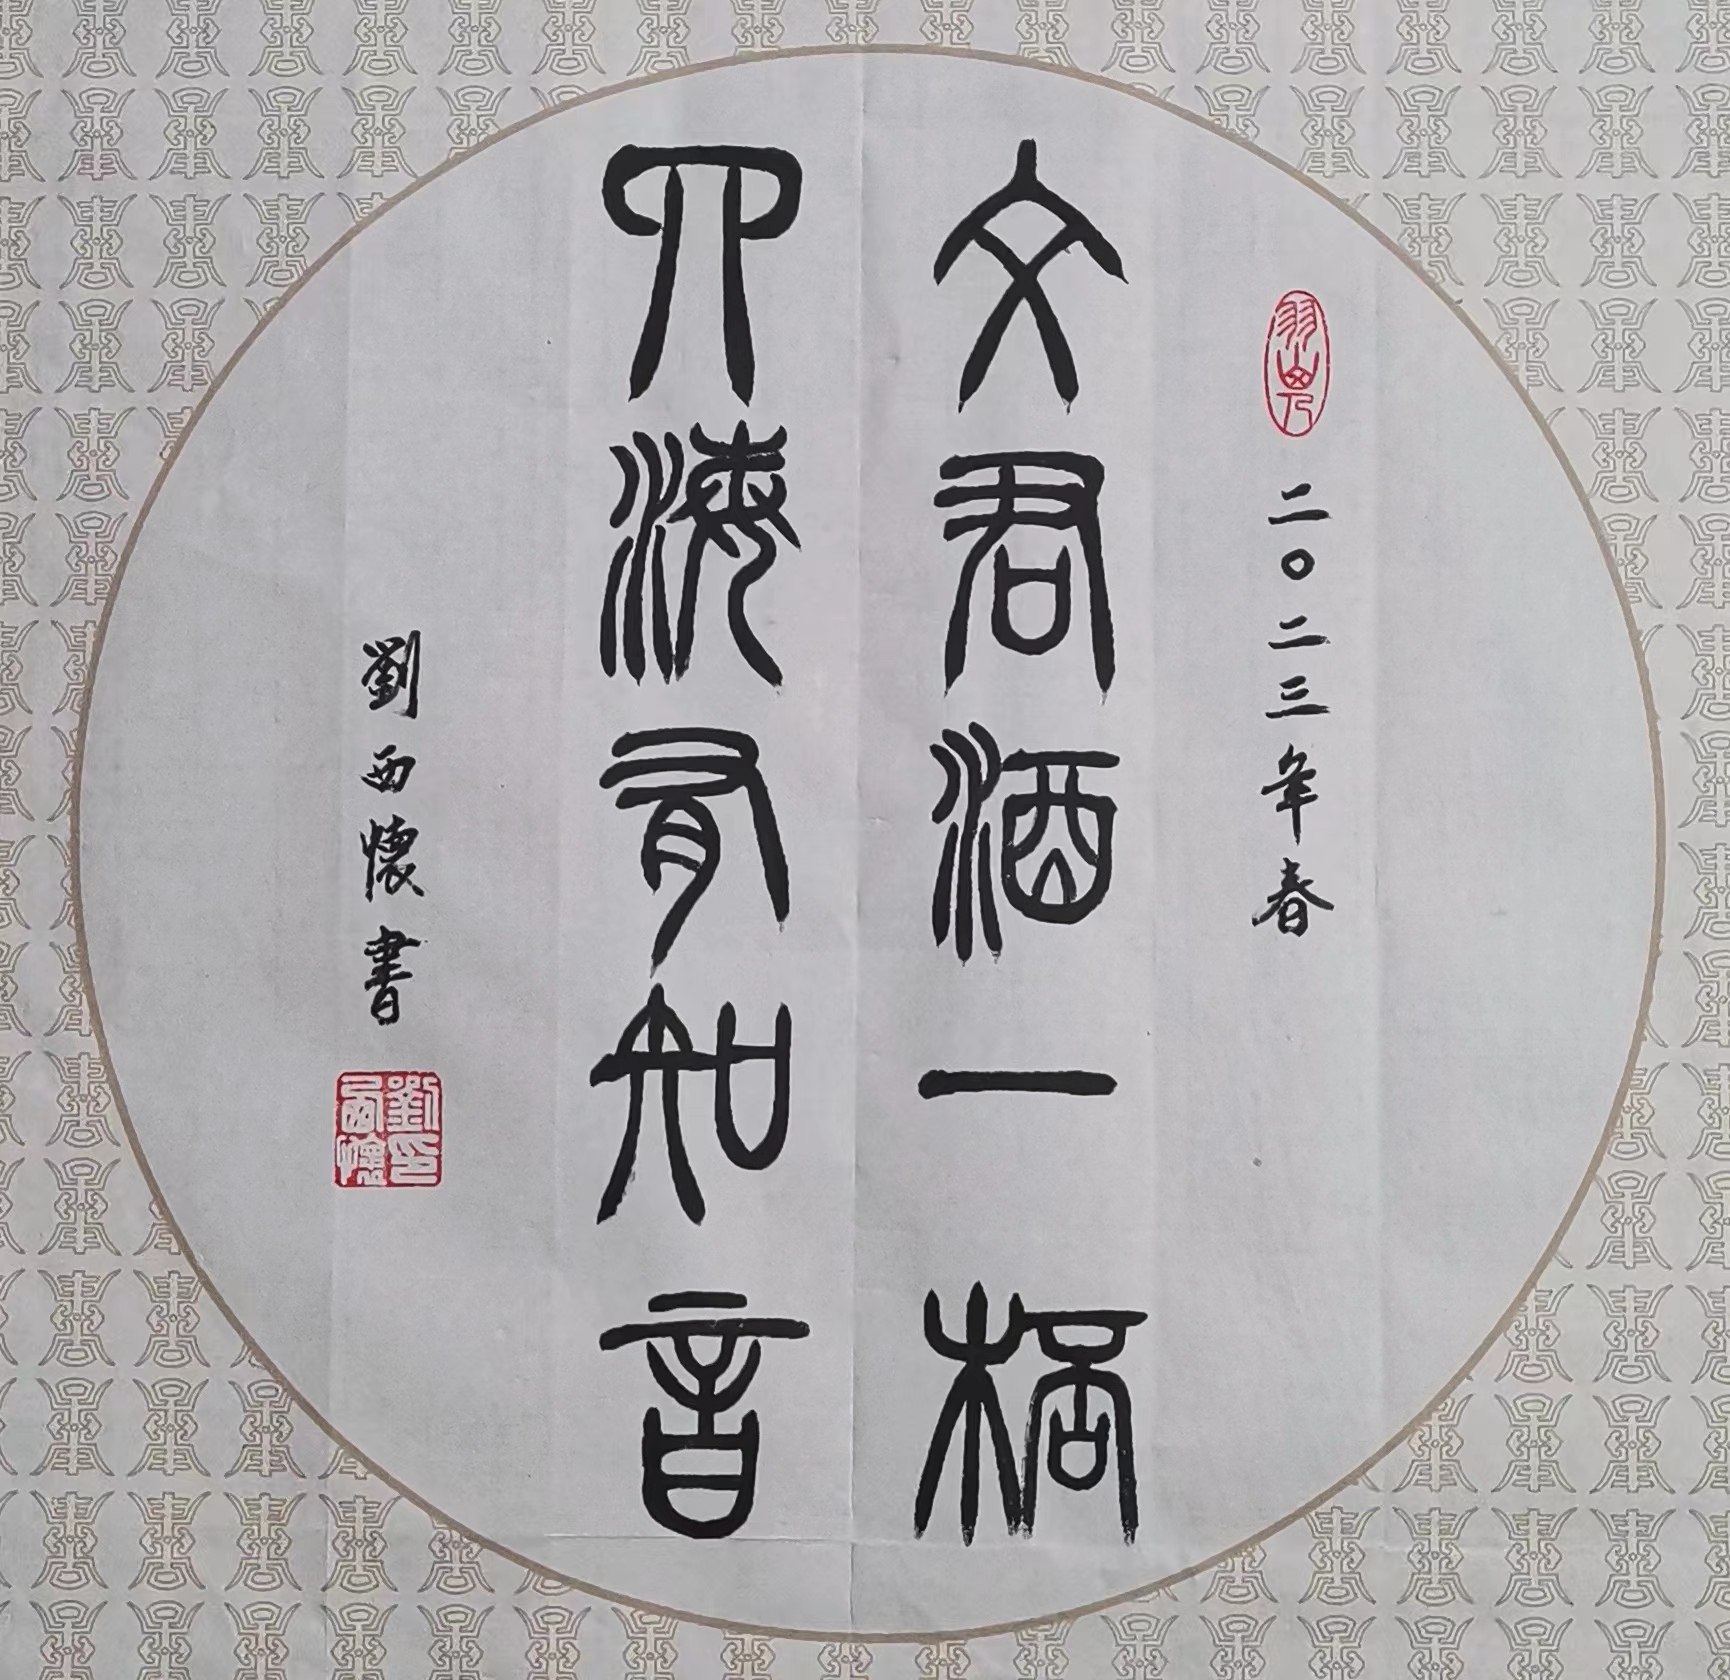 二〇二三年春
文君酒一杯
四海有知音
劉西懷書
劉印
西懷